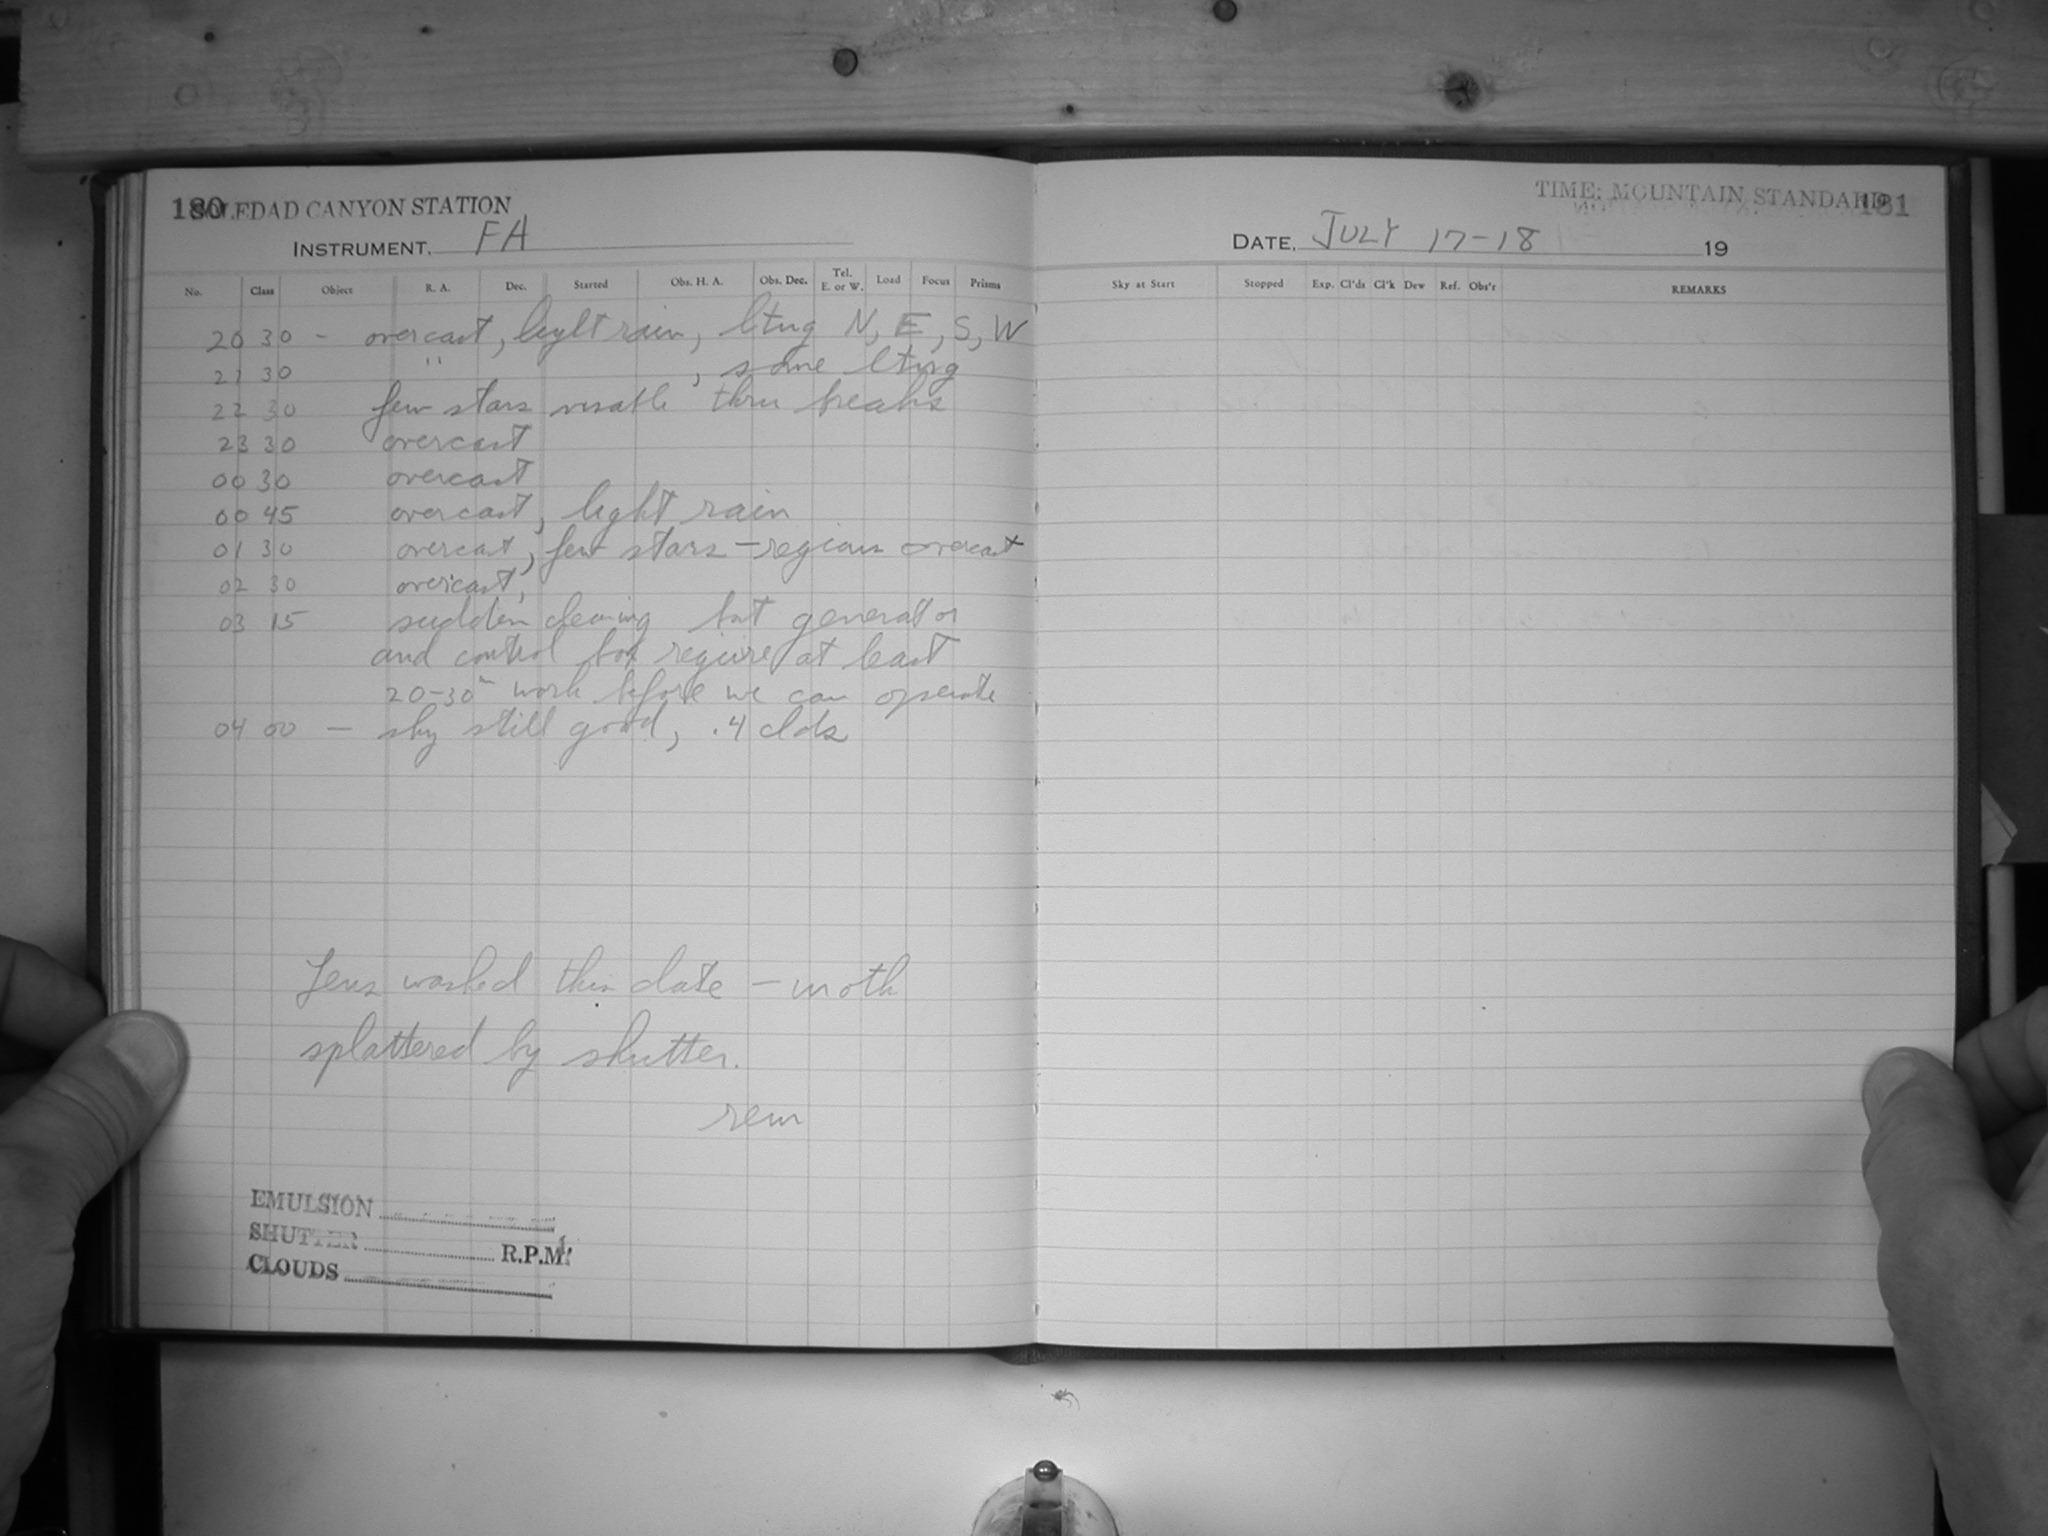 180 SOLEDAD CANYON STATION
INSTRUMENT. FA
No. Class Object R. A. Dec. Started Obs. H. A. Obs. Dec. Tel. E. or W. Load Focus Prisms
20 30 - overcast, light rain, ltng N, E, S, W
21 30 " , some ltng
22 30 few stars visable thru breaks
23 30 overcast
00 30 overcast
00 45 overcast, light rain
01 30 overcast, few stars - regions overcast
02 30 overcast,
03 15 sudden clearing but generator
and control box require at least
20-30m work before we can operate
04 00 - sky still good, .4 clds
Lens washed this date - moth
splattered by shutter.
rem
EMULSION
SHUTTER R.P.M.
CLOUDS
TIME: MOUNTAIN STANDARD 181
DATE. JULY 17-18 19
Sky at Start Stopped Exp. Cl'ds Cl'k Dew Ref. Obs'r REMARKS